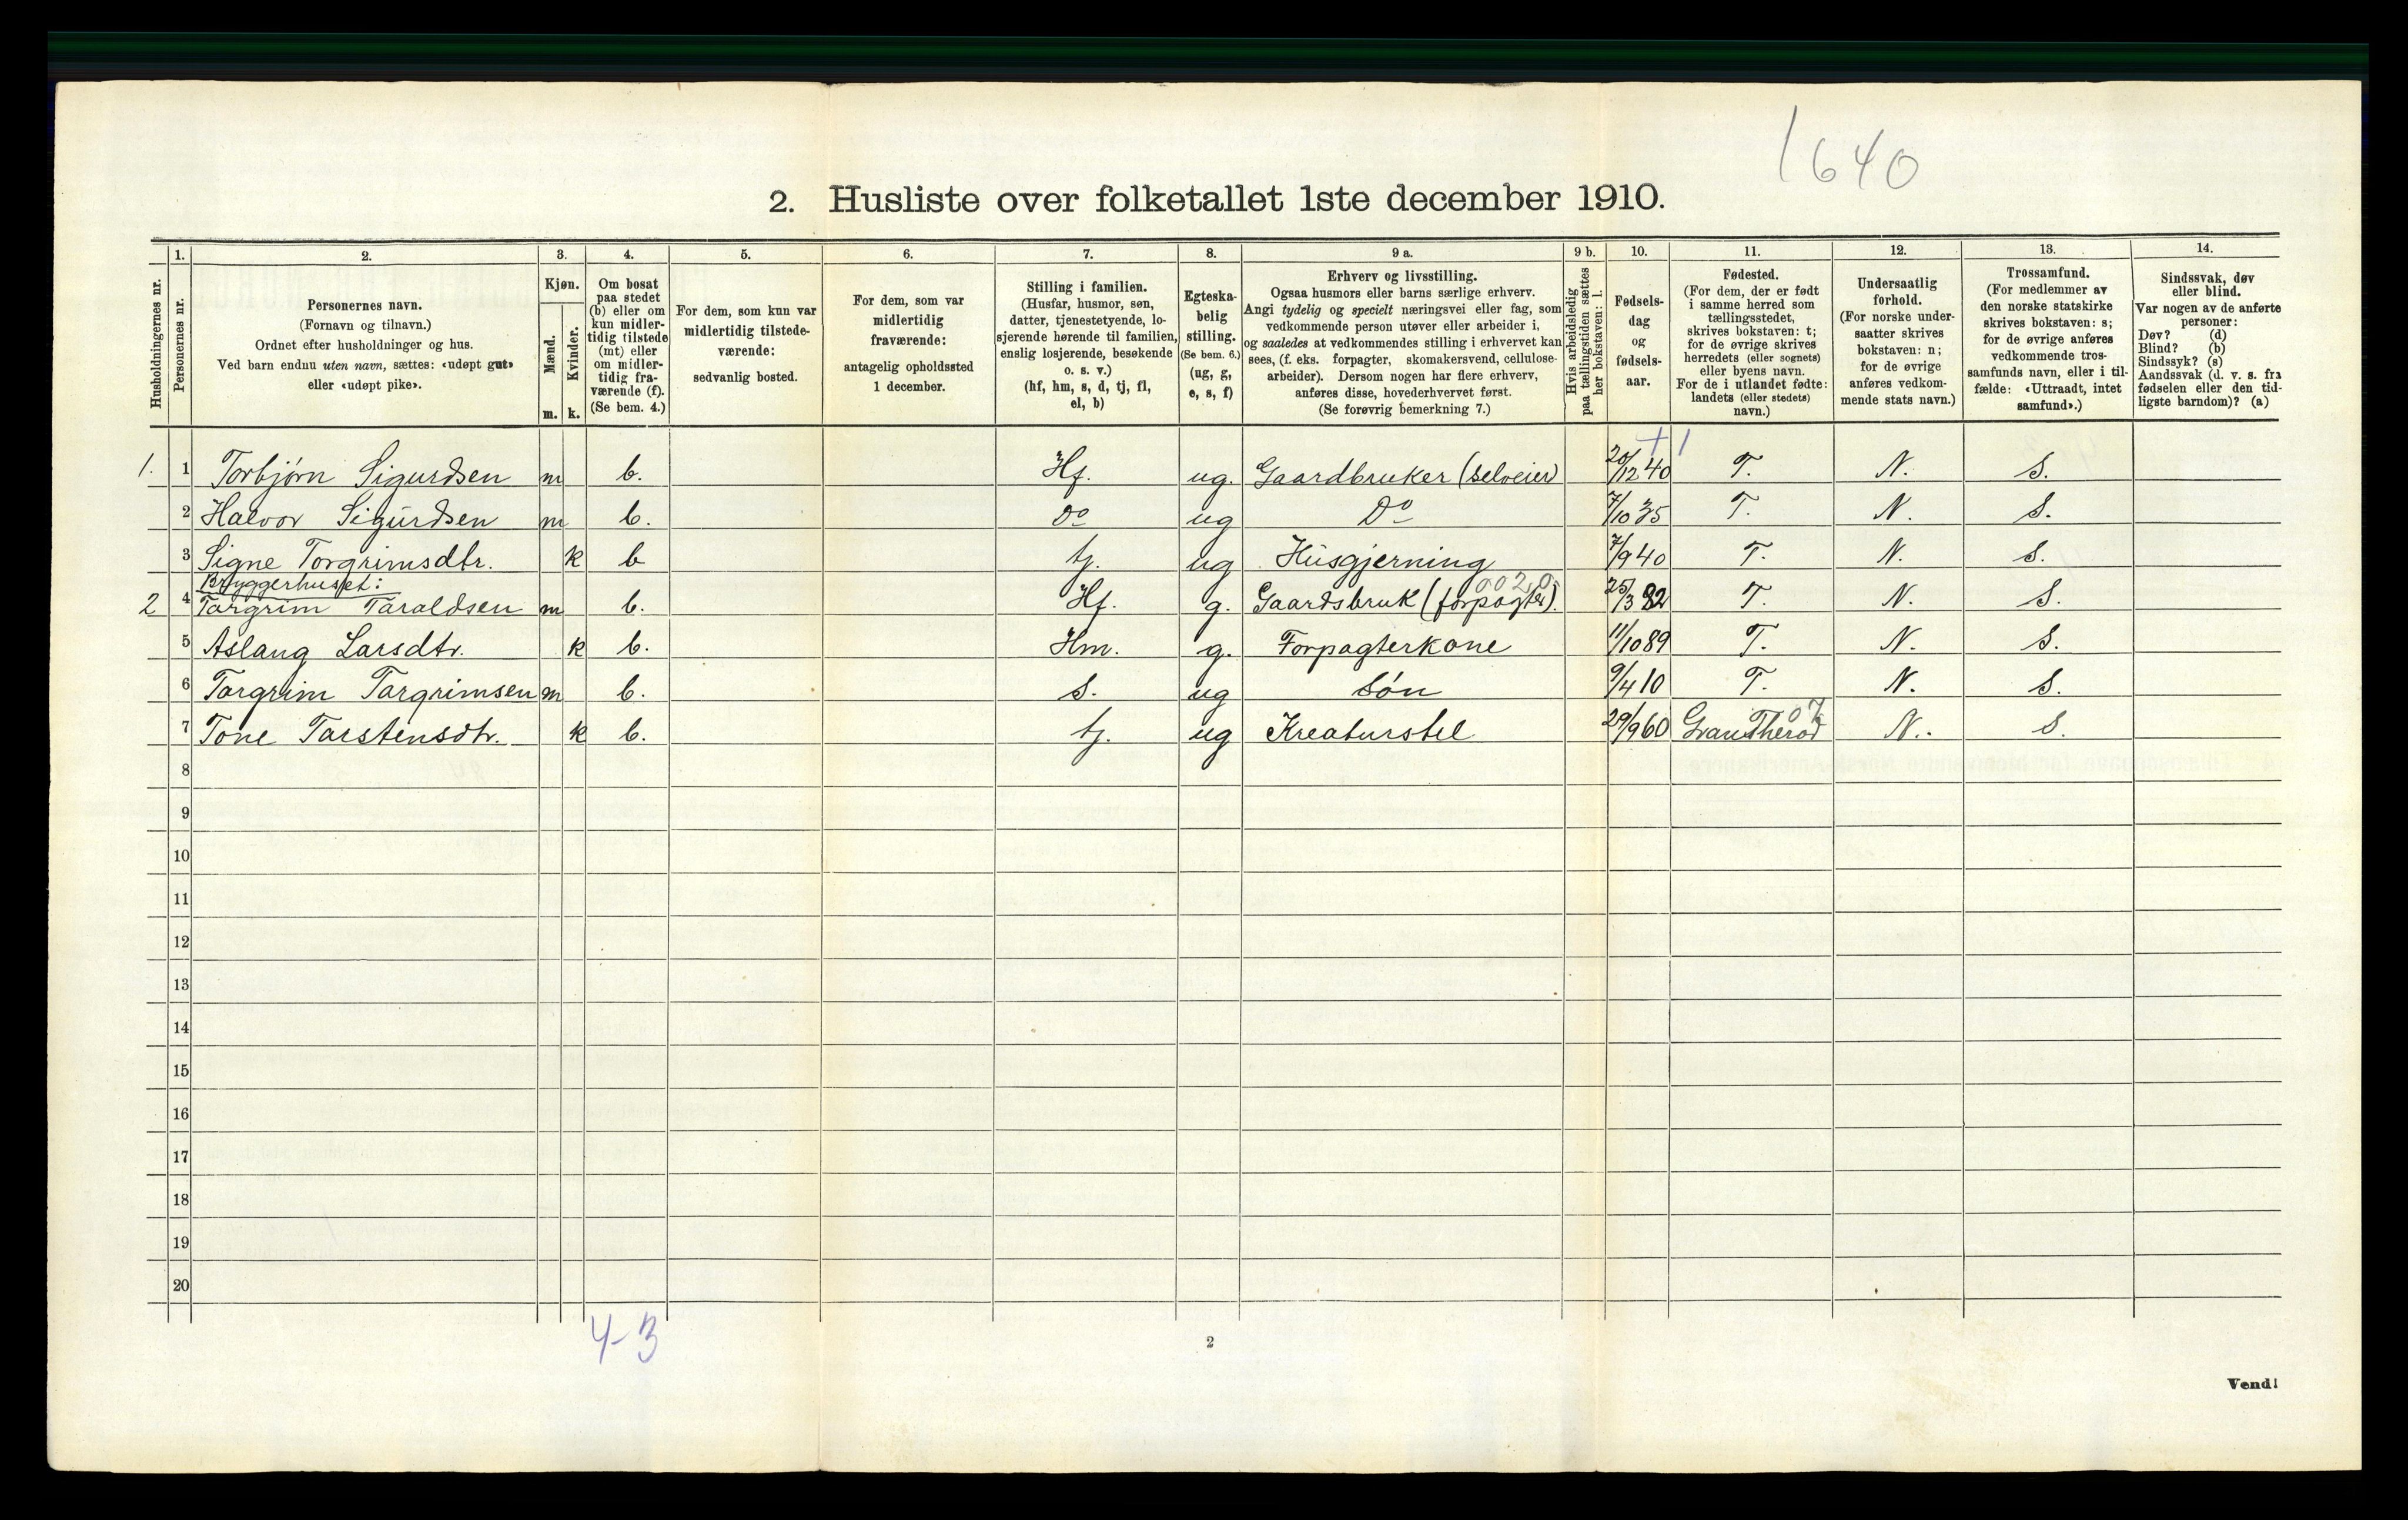 1640
2. Husliste over folketallet 1ste december 1910.
Husholdningernes nr.
1.
Personernes nr.
2.
Personernes navn.
(Fornavn og tilnavn.)
Ordnet efter husholdninger og hus.
Ved barn endnu uten navn, sættes: «udøpt gut»
eller «udøpt pike».
3.
Kjøn.
Mænd.
Kvinder.
m. k.
4.
Om bosat
paa stedet
(b) eller om
kun midler-
tidig tilstede
(mt) eller
om midler-
tidig fra-
værende (f).
(Se bem. 4.)
5.
For dem, som kun var
midlertidig tilstede-
værende:
sedvanlig bosted.
6.
For dem, som var
midlertidig
fraværende:
antagelig opholdssted
1 december.
7.
Stilling i familien.
(Husfar, husmor, søn,
datter, tjenestetyende, lo-
sjerende hørende til familien,
enslig losjerende, besøkende
o. s. v.)
(hf, hm, s, d, tj, fl,
el, b)
8.
Egteska-
belig
stilling.
(Se bem. 6.)
(ug, g,
e, s, f)
9 a.
Erhverv og livsstilling.
Ogsaa husmors eller barns særlige erhverv.
Angi tydelig og specielt næringsvei eller fag, som
vedkommende person utøver eller arbeider i,
og saaledes at vedkommendes stilling i erhvervet kan
sees, (f. eks. forpagter, skomakersvend, cellulose-
arbeider). Dersom nogen har flere erhverv,
anføres disse, hovederhvervet først.
(Se forøvrig bemerkning 7.)
9 b.
Hvis arbeidsledig
paa tællingstiden sættes
her bokstaven: l.
10.
Fødsels-
dag
og
fødsels-
aar.
11.
Fødested.
(For dem, der er født
i samme herred som
tællingsstedet,
skrives bokstaven: t;
for de øvrige skrives
herredets (eller sognets)
eller byens navn.
For de i utlandet fødte:
landets (eller stedets)
navn.)
12.
Undersaatlig
forhold.
(For norske under-
saatter skrives
bokstaven: n;
for de øvrige
anføres vedkom-
mende stats navn.)
13.
Trossamfund.
(For medlemmer av
den norske statskirke
skrives bokstaven: s;
for de øvrige anføres
vedkommende tros-
samfunds navn, eller i til-
fælde: «Uttraadt, intet
samfund».)
14.
Sindssvak, døv
eller blind.
Var nogen av de anførte
personer:
Døv? (d)
Blind? (b)
Sindssyk? (s)
Aandssvak (d. v. s. fra
fødselen eller den tid-
ligste barndom)? (a)
+ 1
1. 1 Torbjørn Sigurdsen m b. Hf. ug. Gaardbruker (selveier) 20/12 40 T. N. S.
2 Halvor Sigurdsen m b. Do ug Do 7/10 35 T. N. S.
3 Signe Torgrimsdtr. k b tj. ug Husgjerning 7/9 40 T. N. S.
Bryggerhuset:
0020
2 4 Targrim Taraldsen m b. Hf. g. Gaardsbruk (forpagter). 25/3 82 T. N. S.
5 Aslaug Larsdtr. k b. Hm. g. Forpagterkone 11/10 89 T. N. S.
6 Targrim Targrimsen m b. s. ug søn 9/4 10 T. N. S.
07
7 Tone Tarstensdtr. k b. tj. ug Kreaturstel 29/9 60 N. S.
8
9
10
11
12
13
14
15
16
17
18
19
20
4-3
2
Vend!